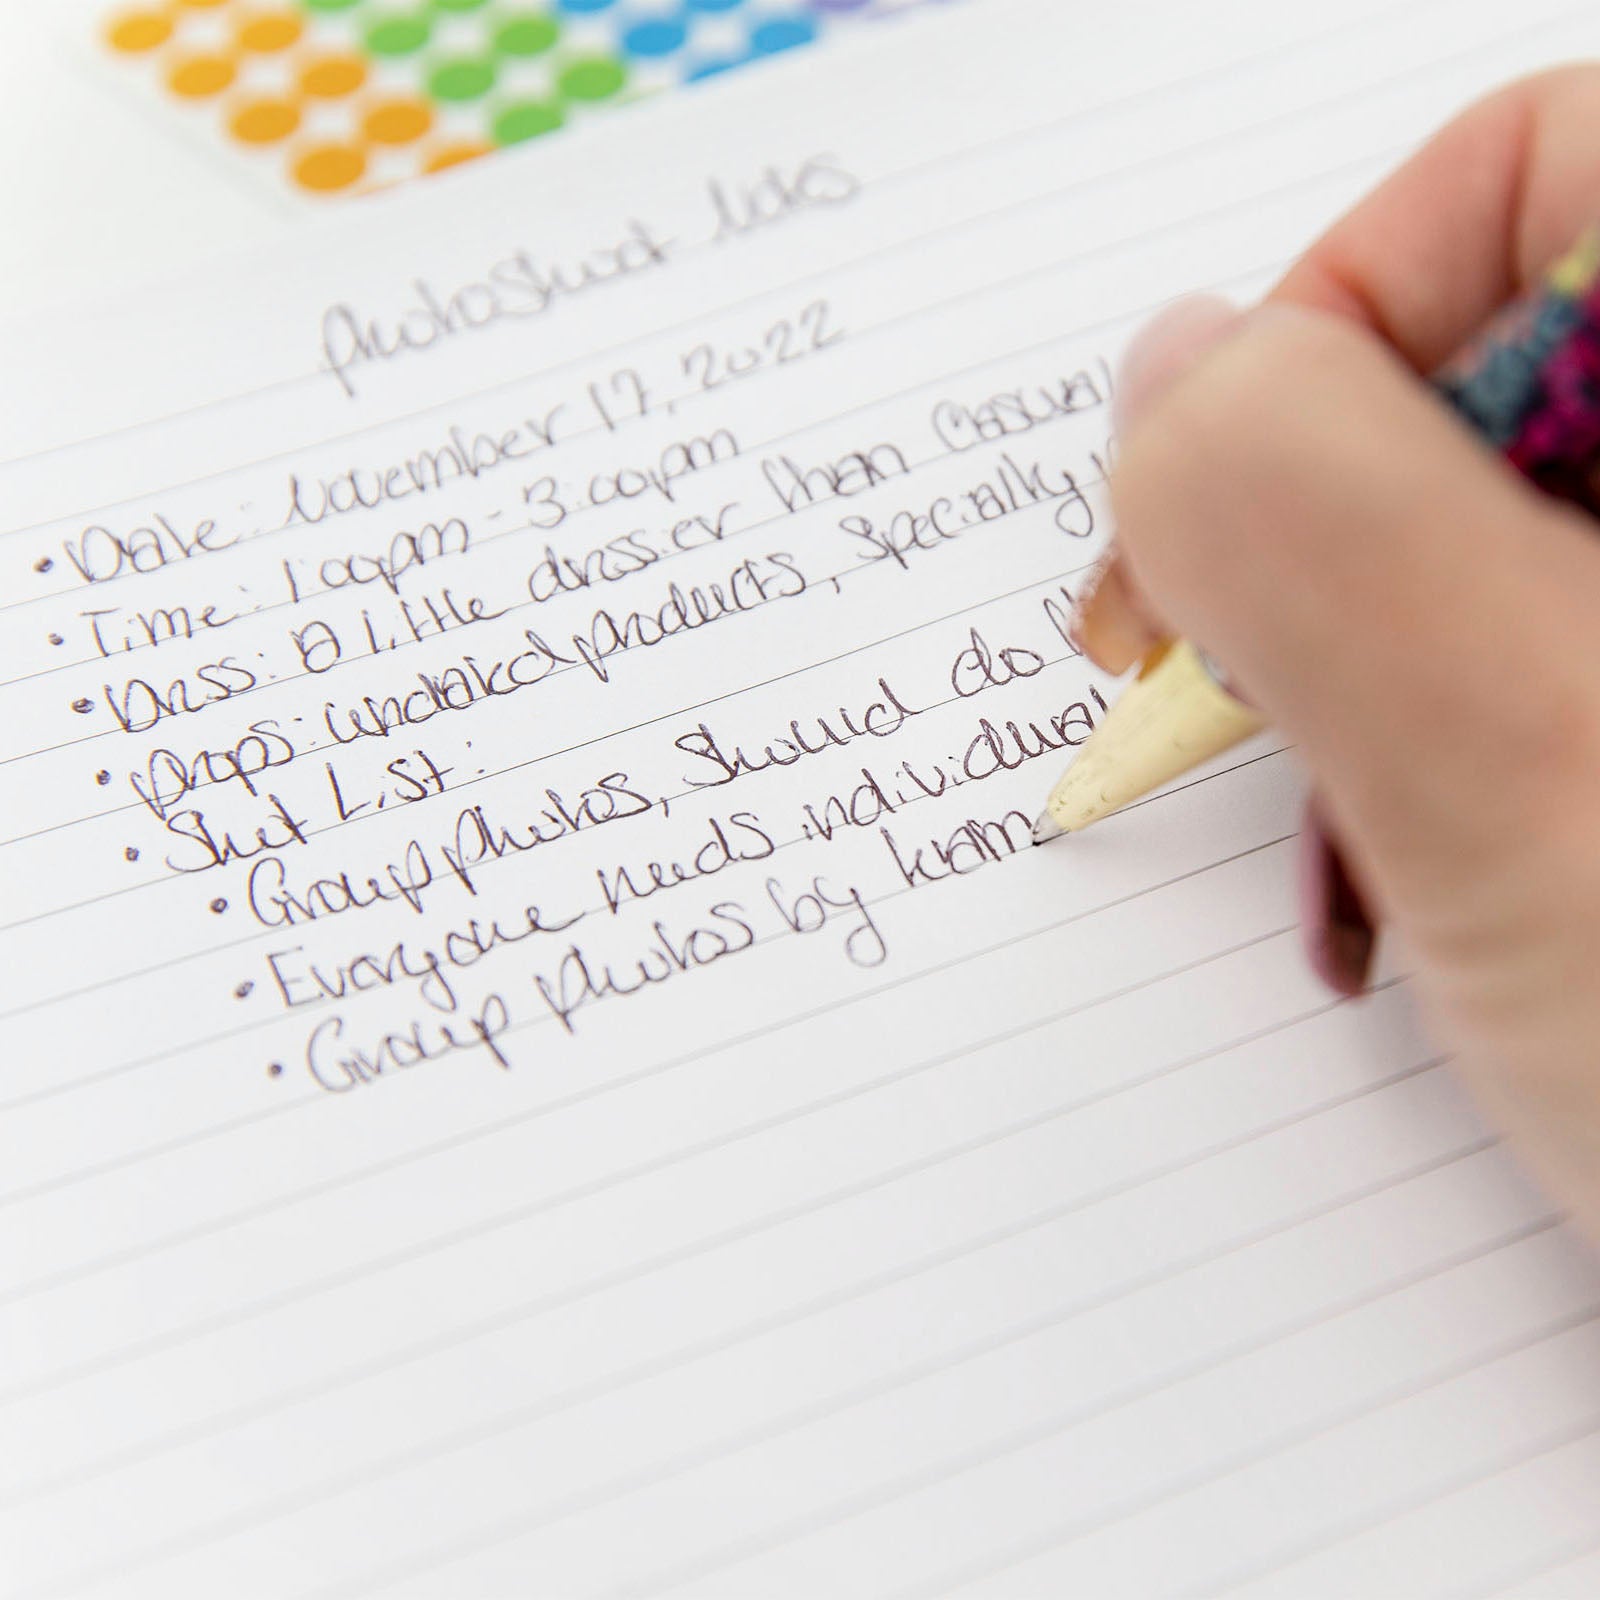 Photoshoot Notes
• Date: November 17, 2022
• Time: 1:00pm - 3:00pm
• Dress: A little dressier than casual
• Props: undated products, specially
• Shot List:
• Group photos, should do
• Everyone needs individual
• Group photos by team